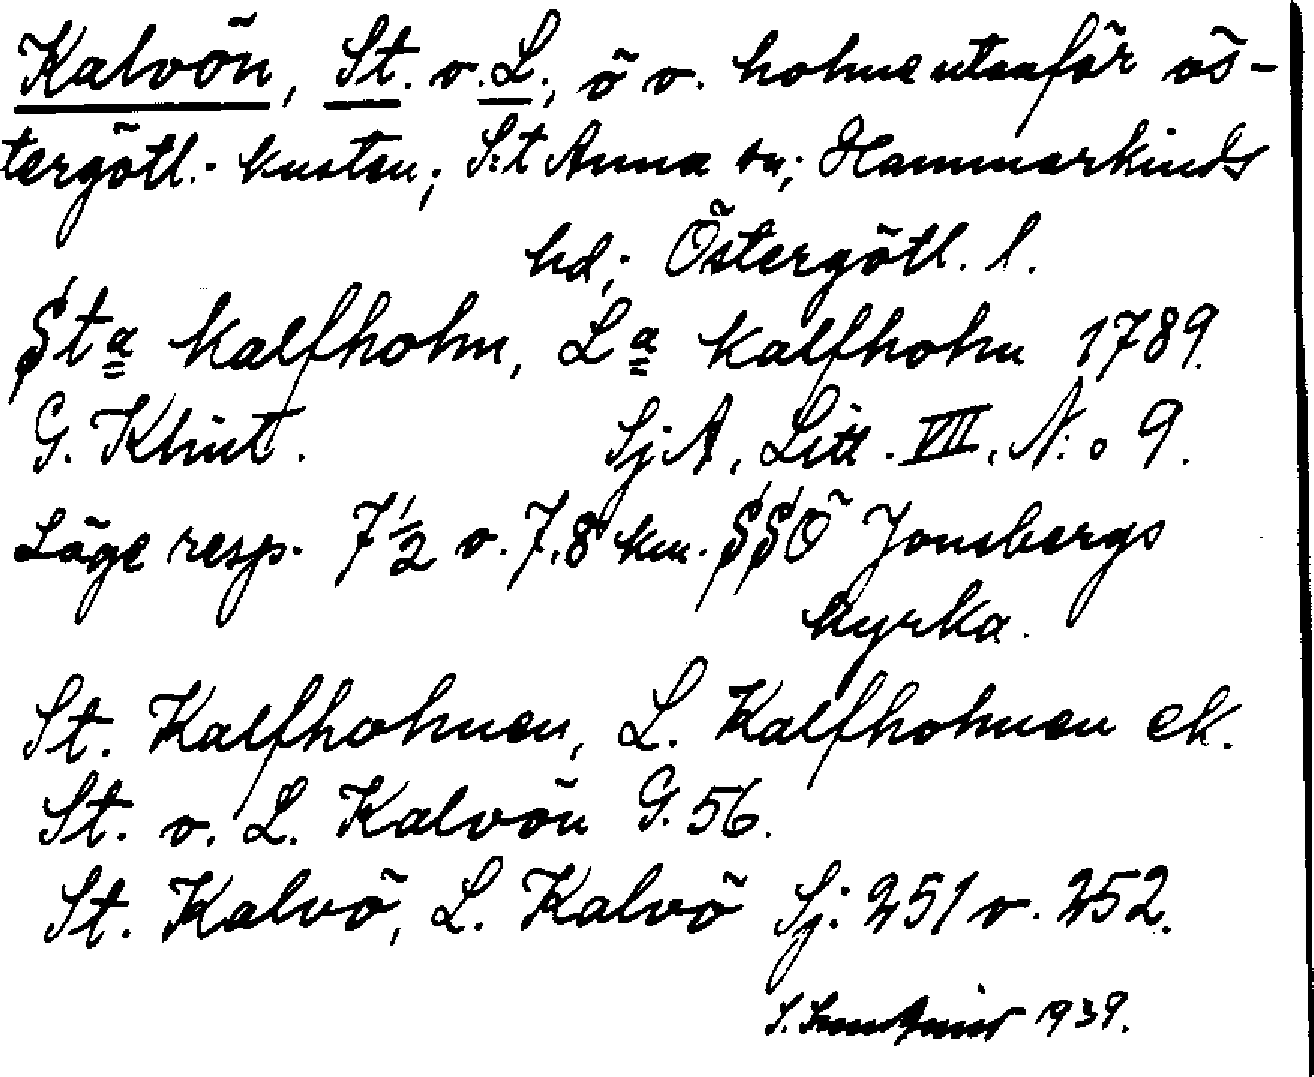 Kalvön, St. o. L., ö o. holme utanför ös-
tergötl. kusten; S:t Anna sn; Hammarkinds
hd; Östergötl. l.
Sta Kalfholm, La Kalfholm 1789.
G. Klint. SjA, Litt. VII, N:o 9.
Läge resp. 7½ o. 7,8 km. SSÖ Jonsbergs
kyrka.
St. Kalfholmen, L. Kalfholmen ek.
St. o. L. Kalvön G. 56.
St. Kalvö, L. Kalvö Sj. 251 o. 252.
1939.